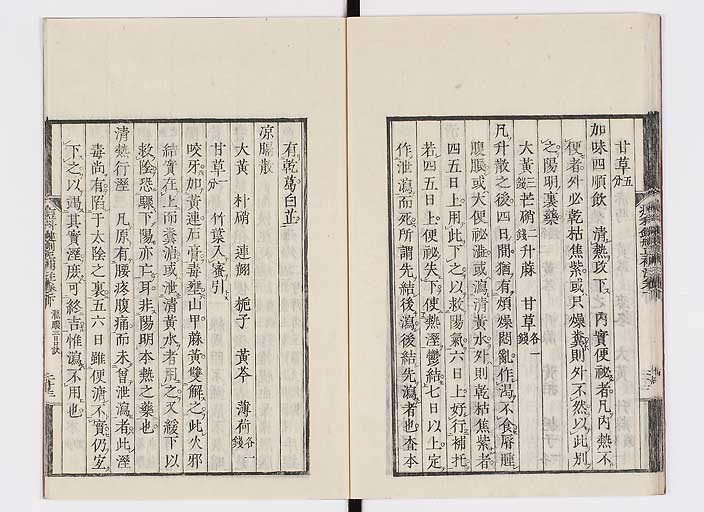 甘草五分
加味四順飲 清熱攻下之内實便祕者凡内熱不
便者外必乾枯焦紫或只燥糞則外不然以此別
之陽明裏藥
大黄錢三芒硝錢二升麻 甘草各一錢
凡升散之後四日間猶有煩燥悶亂作渇不食唇腫
腹脹或大便祕澁或瀉清黄水外則乾枯焦紫者
四五日上用此下之以救陽氣六日上好行補托
若四五日上便祕失下使熱溼鬱結七日以上定
作泄瀉而死所謂先結後瀉後結先瀉者也查本
有乾葛白芷
凉膈散
大黄 朴硝 連翹 梔子 黄芩 薄荷各一錢
甘草一分 竹葉入蜜引
咬牙加黄連石膏毒壅山甲蘇黄雙解之此火邪
結實在上而糞溏或泄清黄水者用之又緩下以
救陰恐驟下陽亦亡耳非陽明本熱之藥也
清熱行溼 凡原有腰疼腹痛而未曾泄瀉者此溼
毒尚有陷于太陰之裏五六日雖便溏不實仍宜
下之以竭其實溼庶可終吉惟瀉不用也